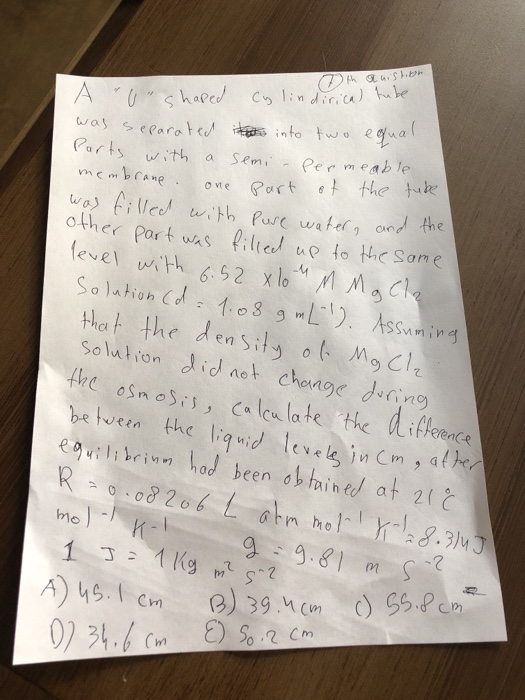 7 th Quistion
A "U" shaped cylindirical tube
was separated into two equal
Parts with a semi-permeable
membrane. one part of the tube
was filled with Pure water, and the
other part was filled up to the same
level with 6.52 x10⁻⁴ M MgCl₂
Solution (d = 1.08 g mL⁻¹). Assuming
that the density of MgCl₂
solution did not change during
the osmosis, calculate the difference
between the liquid levels in cm, after
equilibrium had been obtained at 21°C
R = 0.08206 L atm mol⁻¹ K⁻¹ = 8.314 J
mol⁻¹ K⁻¹ g = 9.81 m s⁻²
1 J = 1 Kg m² s⁻²
A) 45.1 cm B) 39.4 cm C) 55.8 cm
D) 34.6 cm E) 50.2 cm